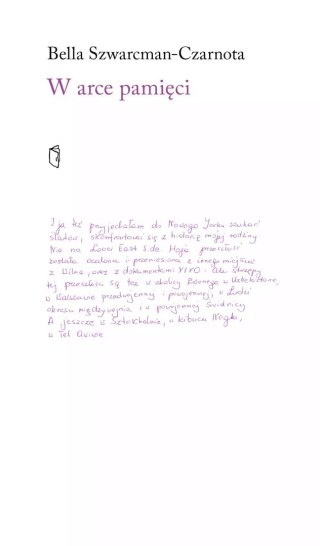 Bella Szwarcman-Czarnota
W arce pamięci
I ja też przyjechałam do Nowego Jorku szukać
śladów, skonfrontować się z historią mojej rodziny
Nie na Lower East Side. Moja przeszłość
została ocalona i przeniesiona z innego miejsca
z Wilna, wraz z dokumentami YIVO. Ale strzępy
tej przeszłości są też w okolicy Równego w Uzbekistanie,
w Warszawie przedwojennej i powojennej, w Łodzi
okresu międzywojnia i w powojennej Świdnicy
A jeszcze w Sztokholmie, w kibucu Negba,
w Tel Awiwie